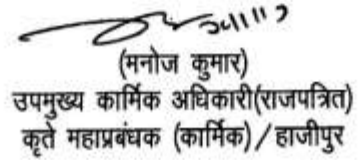 (मनोज कुमार)
उपमुख्य कार्मिक अधिकारी(राजपत्रित)
कृते महाप्रबंधक (कार्मिक)/हाजीपुर